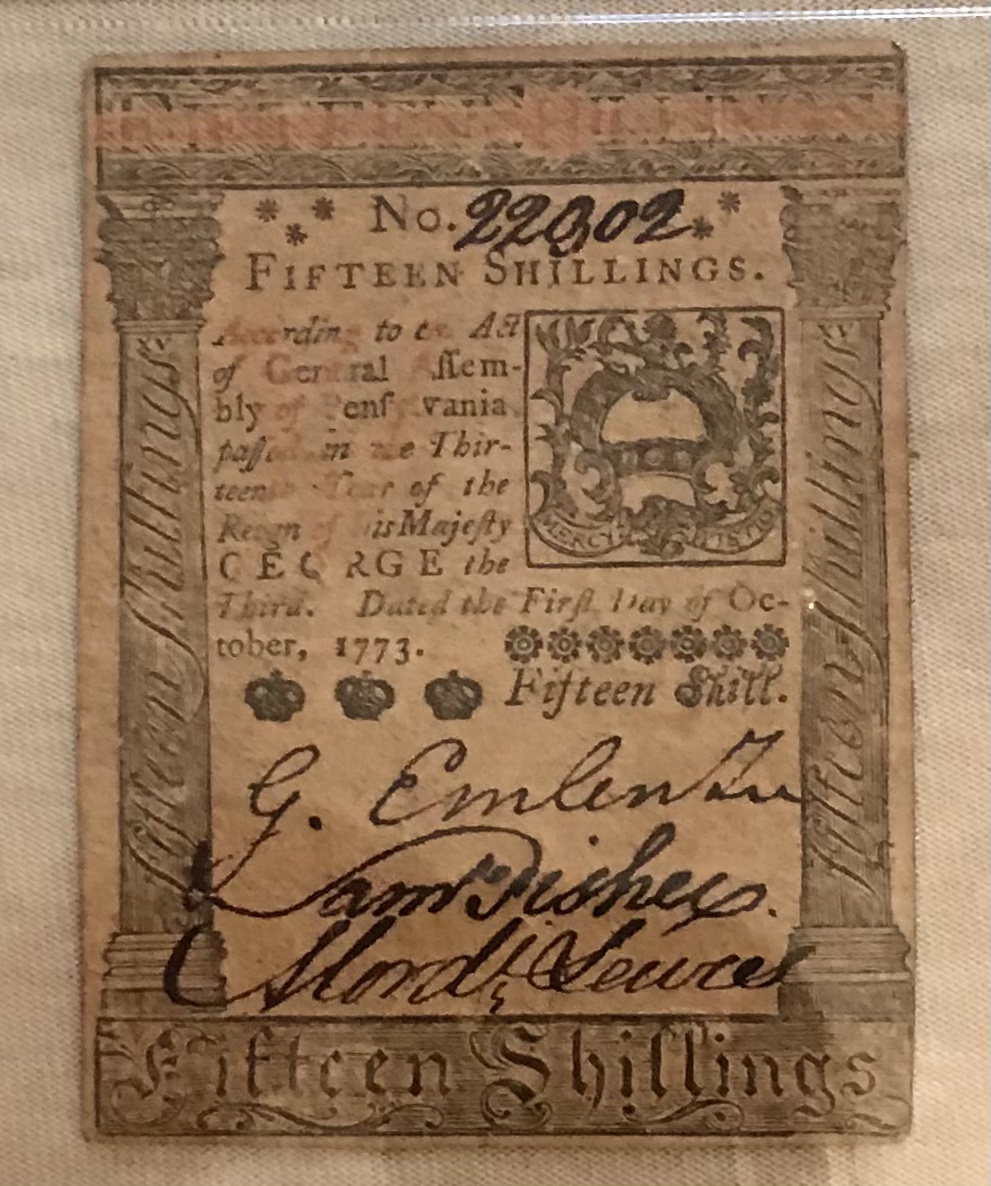 FIFTEEN SHILLINGS
No. 22302
FIFTEEN SHILLINGS.
According to an Act
of General Assem-
bly of Pensylvania
passed in the Thir-
teenth Year of the
Reign of his Majesty
GEORGE the
Third. Dated the First Day of Oc-
tober, 1773.
Fifteen Shill.
MERCY JUSTICE
Fifteen Shillings
Fifteen Shillings
G. Emlen Ju
Sam Fisher
Mord Lewis
Fifteen Shillings